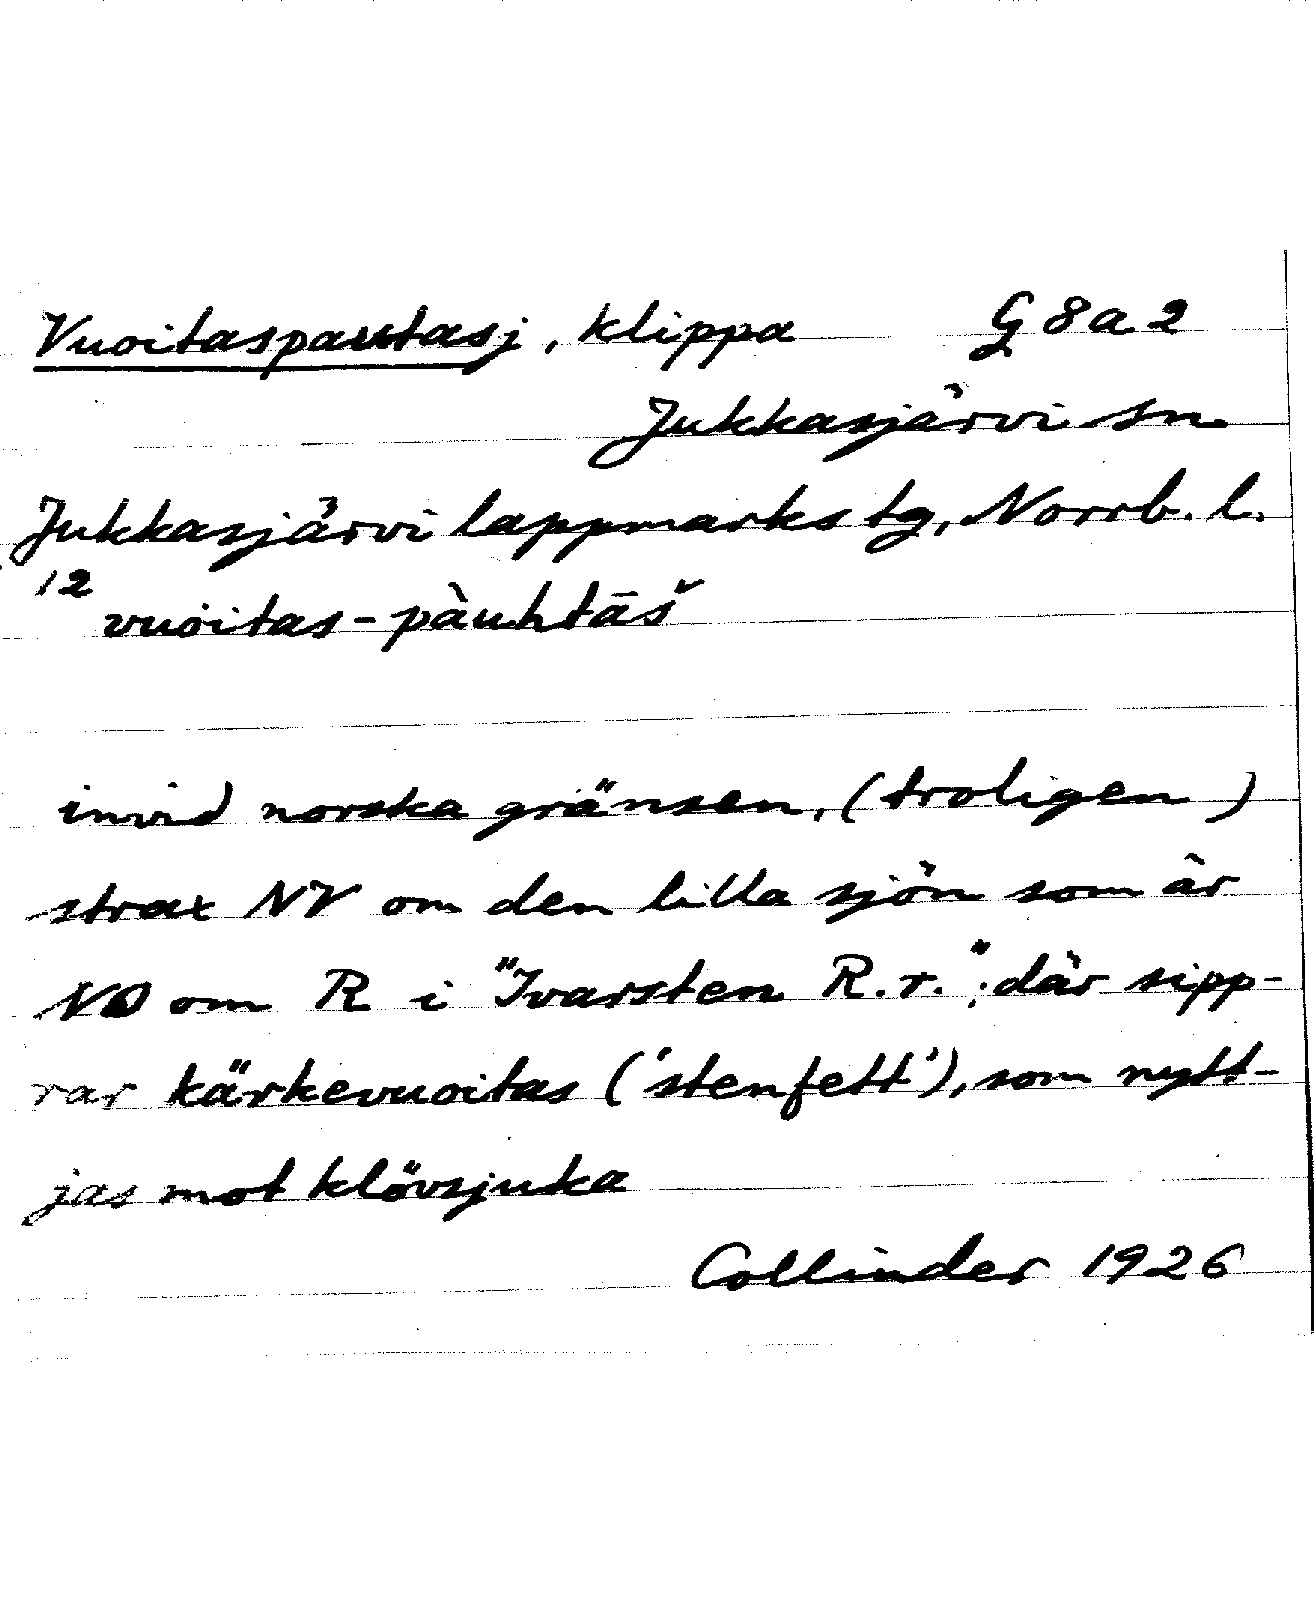 Vuoitaspautasj, klippa G 8 a 2
Jukkasjärvi sn.
Jukkasjärvi lappmarks tg, Norrb. l.
12 vuoitas-pàuhtāš
invid norska gränsen, (troligen)
strax NV om den lilla sjön som är
NO om R i "Ivarsten R.r."; där sipp-
rar kärkevuoitas ('stenfett'), som nytt-
jas mot klövsjuka
Collinder 1926